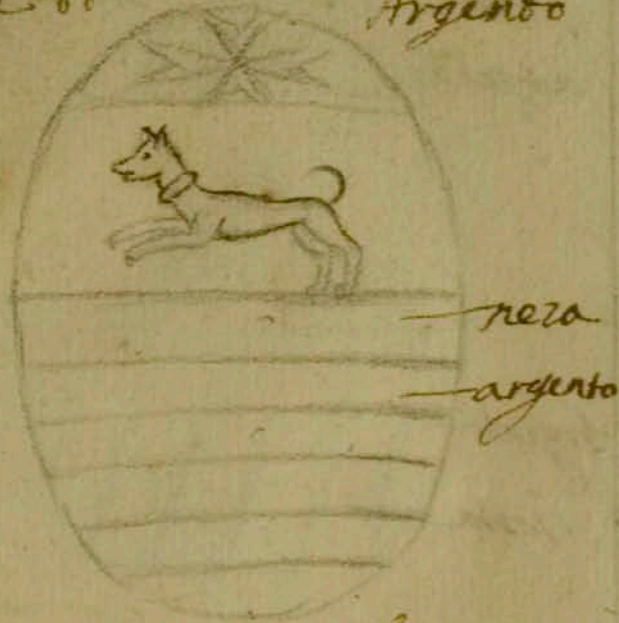 Argento
nera
argento